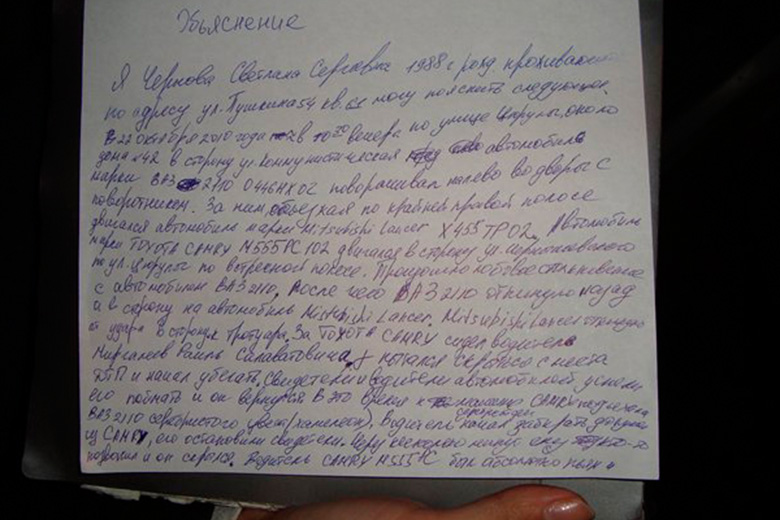 Объяснение
Я Чернова Светлана Сергеевна 1988 г рожд. проживающая
по адресу ул. Пушкина 54 кв. 61 могу пояснить следующее.
В 22 октября 2010 года в 10 30 вечера по улице Цюрупы, около
дома 42 в сторону ул. Коммунистическая автомобиль
марки ВАЗ 2110 О446НХ02 поворачивал налево во дворы с
поворотником. За ним, объезжая по крайней правой полосе
двигался автомобиль марки Mitsubishi Lancer Х455ТР02. Автомобиль
марки TOYOTA CAMRY М555РС 102 двигался в сторону ул. Чернышевского
по ул. Цюрупы по встречной полосе. Произошло лобовое столкновение
с автомобилем ВАЗ 2110. После чего ВАЗ 2110 откинуло назад
и в сторону на автомобиль Mitsubishi Lancer. Mitsubishi Lancer откинуло
от удара в сторону тротуара. За TOYOTA CAMRY сидел водитель
Рамиль Салаватович, пытался скрыться с места
ДТП и начал убегать. Свидетели и водители автомобилей успели
его поймать и он вернулся. В это время к CAMRY подъехала
ВАЗ 2110 серебристого цвет (хамелеон), водитель начал забирать
из CAMRY, его остановили свидетели. Через несколько минут ему кто-то
позвонил и он скрылся. Водитель CAMRY М555РС был абсолютно пьян